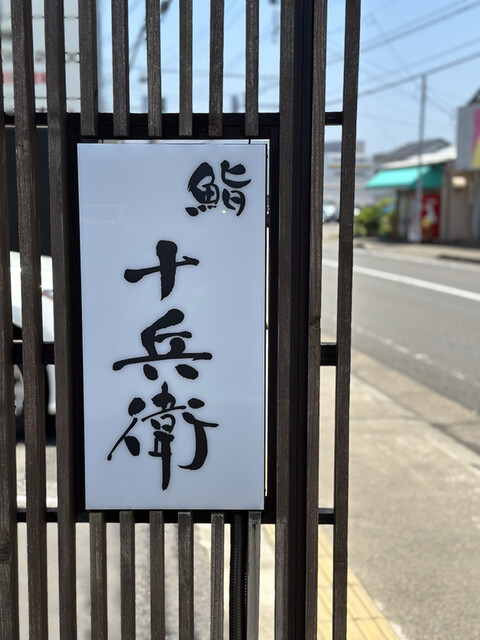 鮨
十兵衛